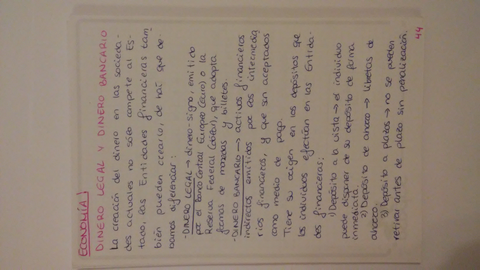 ECONOMÍA
DINERO LEGAL Y DINERO BANCARIO
La creación del dinero en las socieda-
des actuales no sólo compete al Es-
tado, las Entidades financieras tam
bién pueden crearlo, de ahí que de-
bamos diferenciar:
-DINERO LEGAL → dinero-signo, emitido
por el Banco Central Europeo (euro) o la
Reserva Federal (dólar), que adopta
formas de monedas y billetes.
-DINERO BANCARIO → activos financieros
indirectos emitidos por los intermedia
rios financieros, y que son aceptados
como medio de pago.
Tiene su origen en los depósitos que
los individuos efectúan en las Entida-
des financieras:
1) Depósito a la vista → el individuo
puede disponer de su depósito de forma
inmediata.
2) Depósito de ahorro → libretas de
ahorro
3) Depósito a plazos → no se pueden
retirar antes de plazo sin penalización.
44